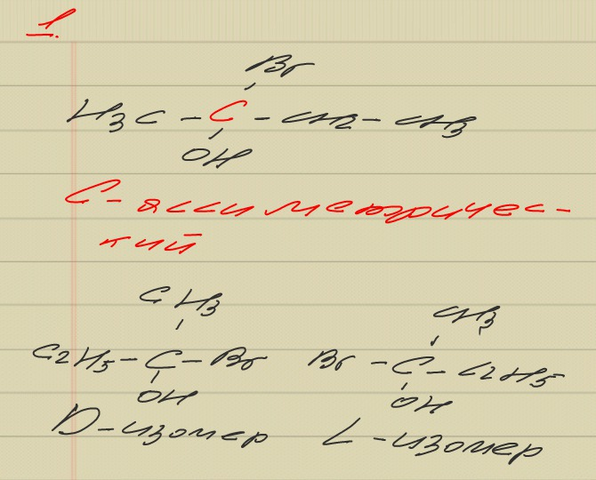 1.
Br
H3C - C - CH2 - CH3
OH
C - ассиметричес-
кий
CH3 CH3
C2H5 - C - Br Br - C - C2H5
OH OH
D-изомер L-изомер